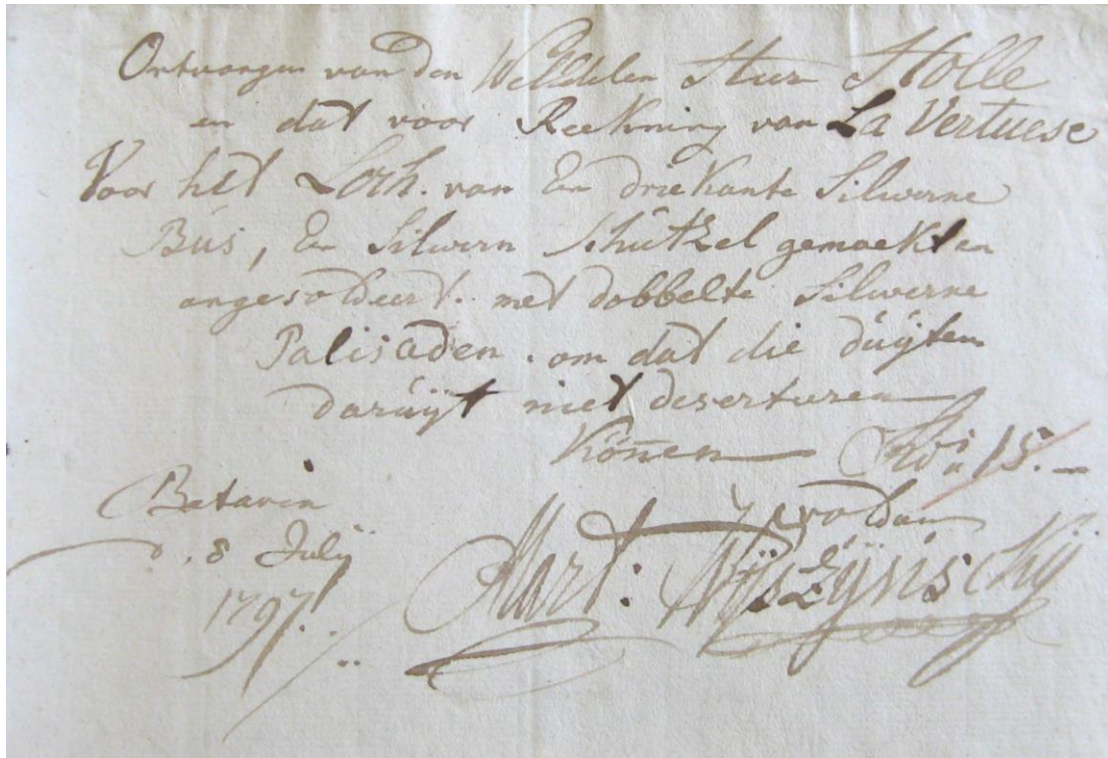 Ontvangen van den WelEdelen Heer Stolle
en dat voor Reekning van La Vertuese
Voor het Loth. van En driekante Silwerne
Bús, En Silwern Schútzel gemaekt en
angesoldeert. met dobbelte Silwerne
Palisaden. om dat die dúÿten
darúÿt niet deserturen
Können 15.
Batavia voldan
d. 8 Julÿ Mart:
1797.